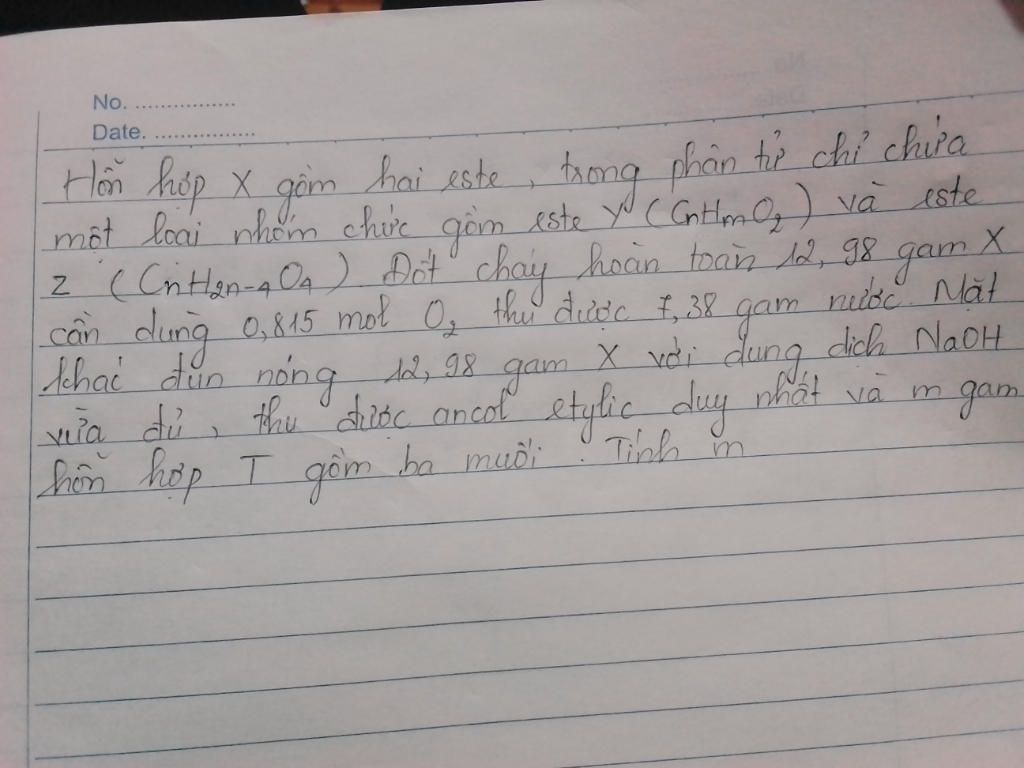 No. ................
Date. ................
Hỗn hợp X gồm hai este, trong phân tử chỉ chứa
một loại nhóm chức gồm este Y (CnHmO2) và este
Z (CnH2n-4O4) Đốt cháy hoàn toàn 12,98 gam X
cần dùng 0,815 mol O2 thu được 7,38 gam nước. Mặt
khác đun nóng 12,98 gam X với dung dịch NaOH
vừa đủ, thu được ancol etylic duy nhất và m gam
hỗn hợp T gồm ba muối. Tính m